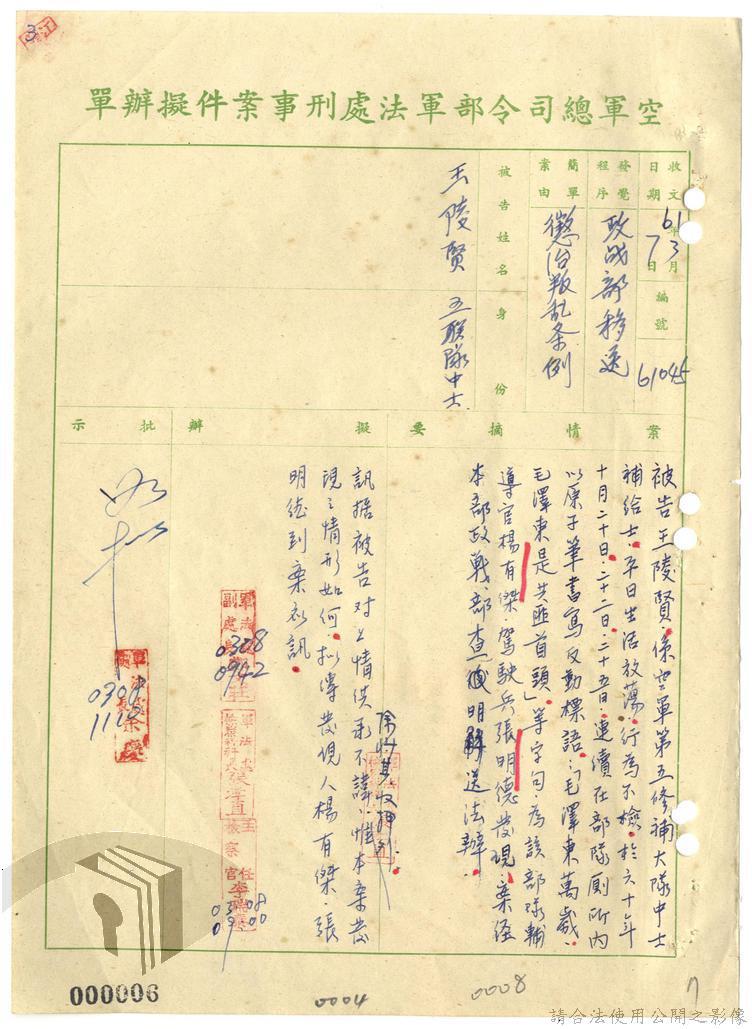 空軍總司令部軍法處刑事案件擬辦單
收文日期
61年3月7日
編號
61045
發覺程序
政战部移送
簡單案由
懲治叛乱条例
被告姓名
身份
王陵賢
五联隊中士
案情摘要
被告王陵賢.係空軍第五修補大隊中士
補給士.平日生活放蕩.行為不檢.於六十年
十月二十日.二十二日.二十五日.連續在部隊厠所內
以原子筆書寫反動標語:「毛澤東萬歲、
毛澤東是共匪首頭」等字句.為該部隊輔
導官楊有傑.駕駛兵張明德發現.案經
本部政戰部查明移送法辦.
擬辦
除將其收押外.
訊据被告对上情供承不諱.惟本案發
現之情形如何.拟傳發現人楊有傑.張
明德到案衣訊.
軍法處副處長
0308
0942
軍法處
主任
李
0308
0900
批示
如拟
軍法處處長
0308
1110
000006
0004
0008
7
3
請合法使用公開之影像